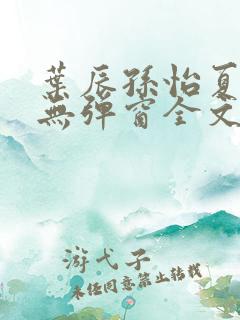 葉辰孫怡夏
無彈窗全文
游弋子
未经同意禁止转载